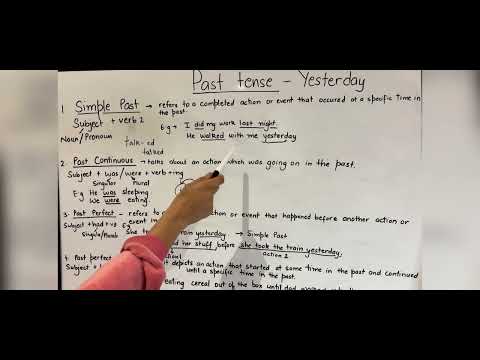 Past tense - Yesterday
1. Simple Past → refers to a completed action or event that occured at a specific time in the past.
Subject + verb 2
Noun/Pronoun
talk-ed
talked
E.g → I did my work last night.
He walked with me yesterday
2. Past Continuous → talks about an action which was going on in the past.
Subject + was/were + verb + ing
Singular Plural
E.g He was sleeping.
We were eating.
3. Past Perfect - refers to action or event that happened before another action or
event in
Subject + had + v3
Singular/Plural
She took the train yesterday → Simple Past
had her stuff before she took the train yesterday.
action 2
4. Past perfect it depicts an action that started at some time in the past and continued
until a specific time in the past.
Subject +
eating cereal out of the box until dad